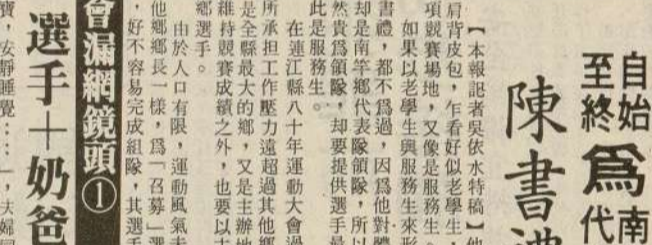 自始
至終
爲
南
代
陳書禮
【本報記者吳依水特稿】他
肩背皮包，乍看好似老學生，
項競賽場地，又像是服務生。
如果以老學生與服務生來形
書禮，都不爲過，因爲他對體
却是南竿鄉代表隊領隊，所以
然貴爲領隊，却要提供選手最
此是服務生。
在連江縣八十年運動大會過
所承担工作壓力遠超過其他鄉
是全縣最大的鄉，又是主辦地
維持競賽成績之外，也要以主
鄉選手。
由於人口有限，運動風氣未
他鄉鄉長一樣，爲「召募」選
，好不容易完成組隊，其選手
會漏網鏡頭①
選手＋奶爸
寶，安靜睡覺……」，夫婦